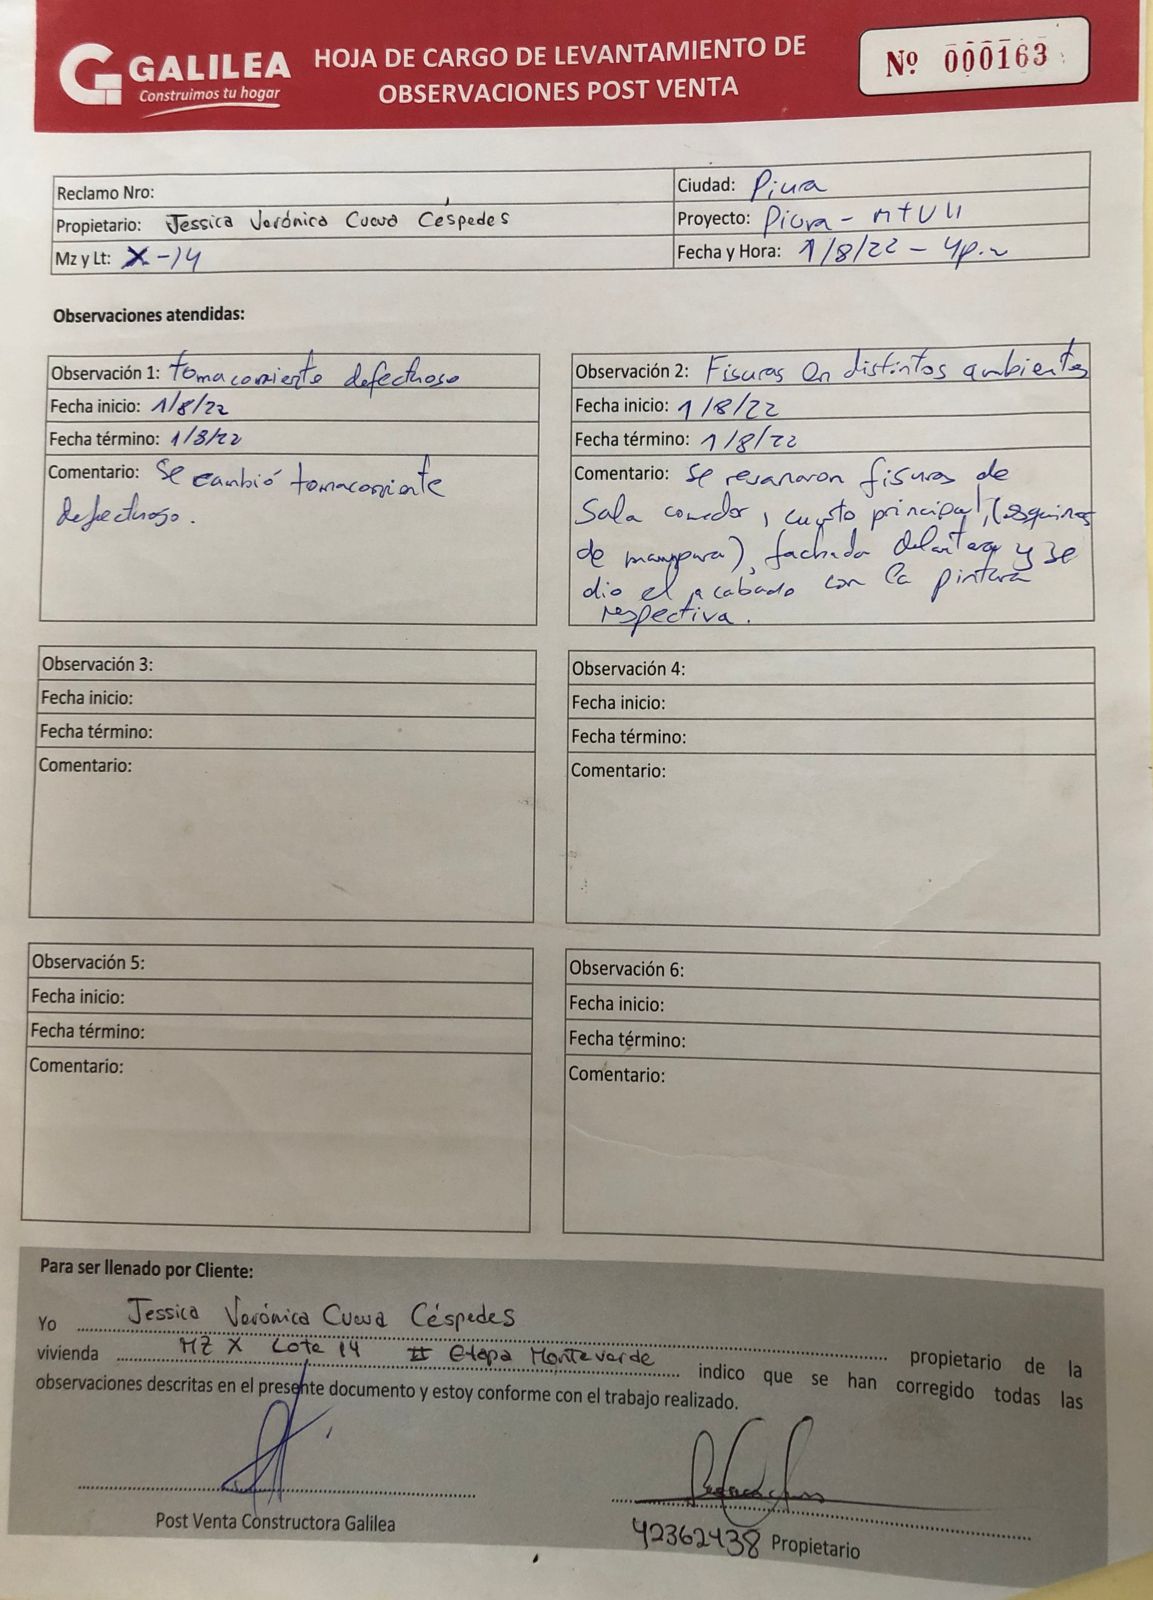 GALILEA
Construimos tu hogar
HOJA DE CARGO DE LEVANTAMIENTO DE
OBSERVACIONES POST VENTA
Nº 000163
Reclamo Nro:
Ciudad: Piura
Propietario: Jessica Verónica Cueva Céspedes
Proyecto: Piura - MTV II
Mz y Lt: X-14
Fecha y Hora: 1/8/22 - 4p.m
Observaciones atendidas:
Observación 1: tomacorriente defectuoso
Fecha inicio: 1/8/22
Fecha término: 1/8/22
Comentario: Se cambió tomacorriente
defectuoso.
Observación 2: Fisuras en distintos ambientes
Fecha inicio: 1/8/22
Fecha término: 1/8/22
Comentario: Se resanaron fisuras de
Sala comedor, cuarto principal, (esquinas
de mampara), fachada delantera y se
dio el acabado con la pintura
respectiva.
Observación 3:
Fecha inicio:
Fecha término:
Comentario:
Observación 4:
Fecha inicio:
Fecha término:
Comentario:
Observación 5:
Fecha inicio:
Fecha término:
Comentario:
Observación 6:
Fecha inicio:
Fecha término:
Comentario:
Para ser llenado por Cliente:
Yo Jessica Verónica Cueva Céspedes propietario de la
vivienda MZ X Lote 14 II etapa Monteverde indico que se han corregido todas las
observaciones descritas en el presente documento y estoy conforme con el trabajo realizado.
Post Venta Constructora Galilea
42362438 Propietario